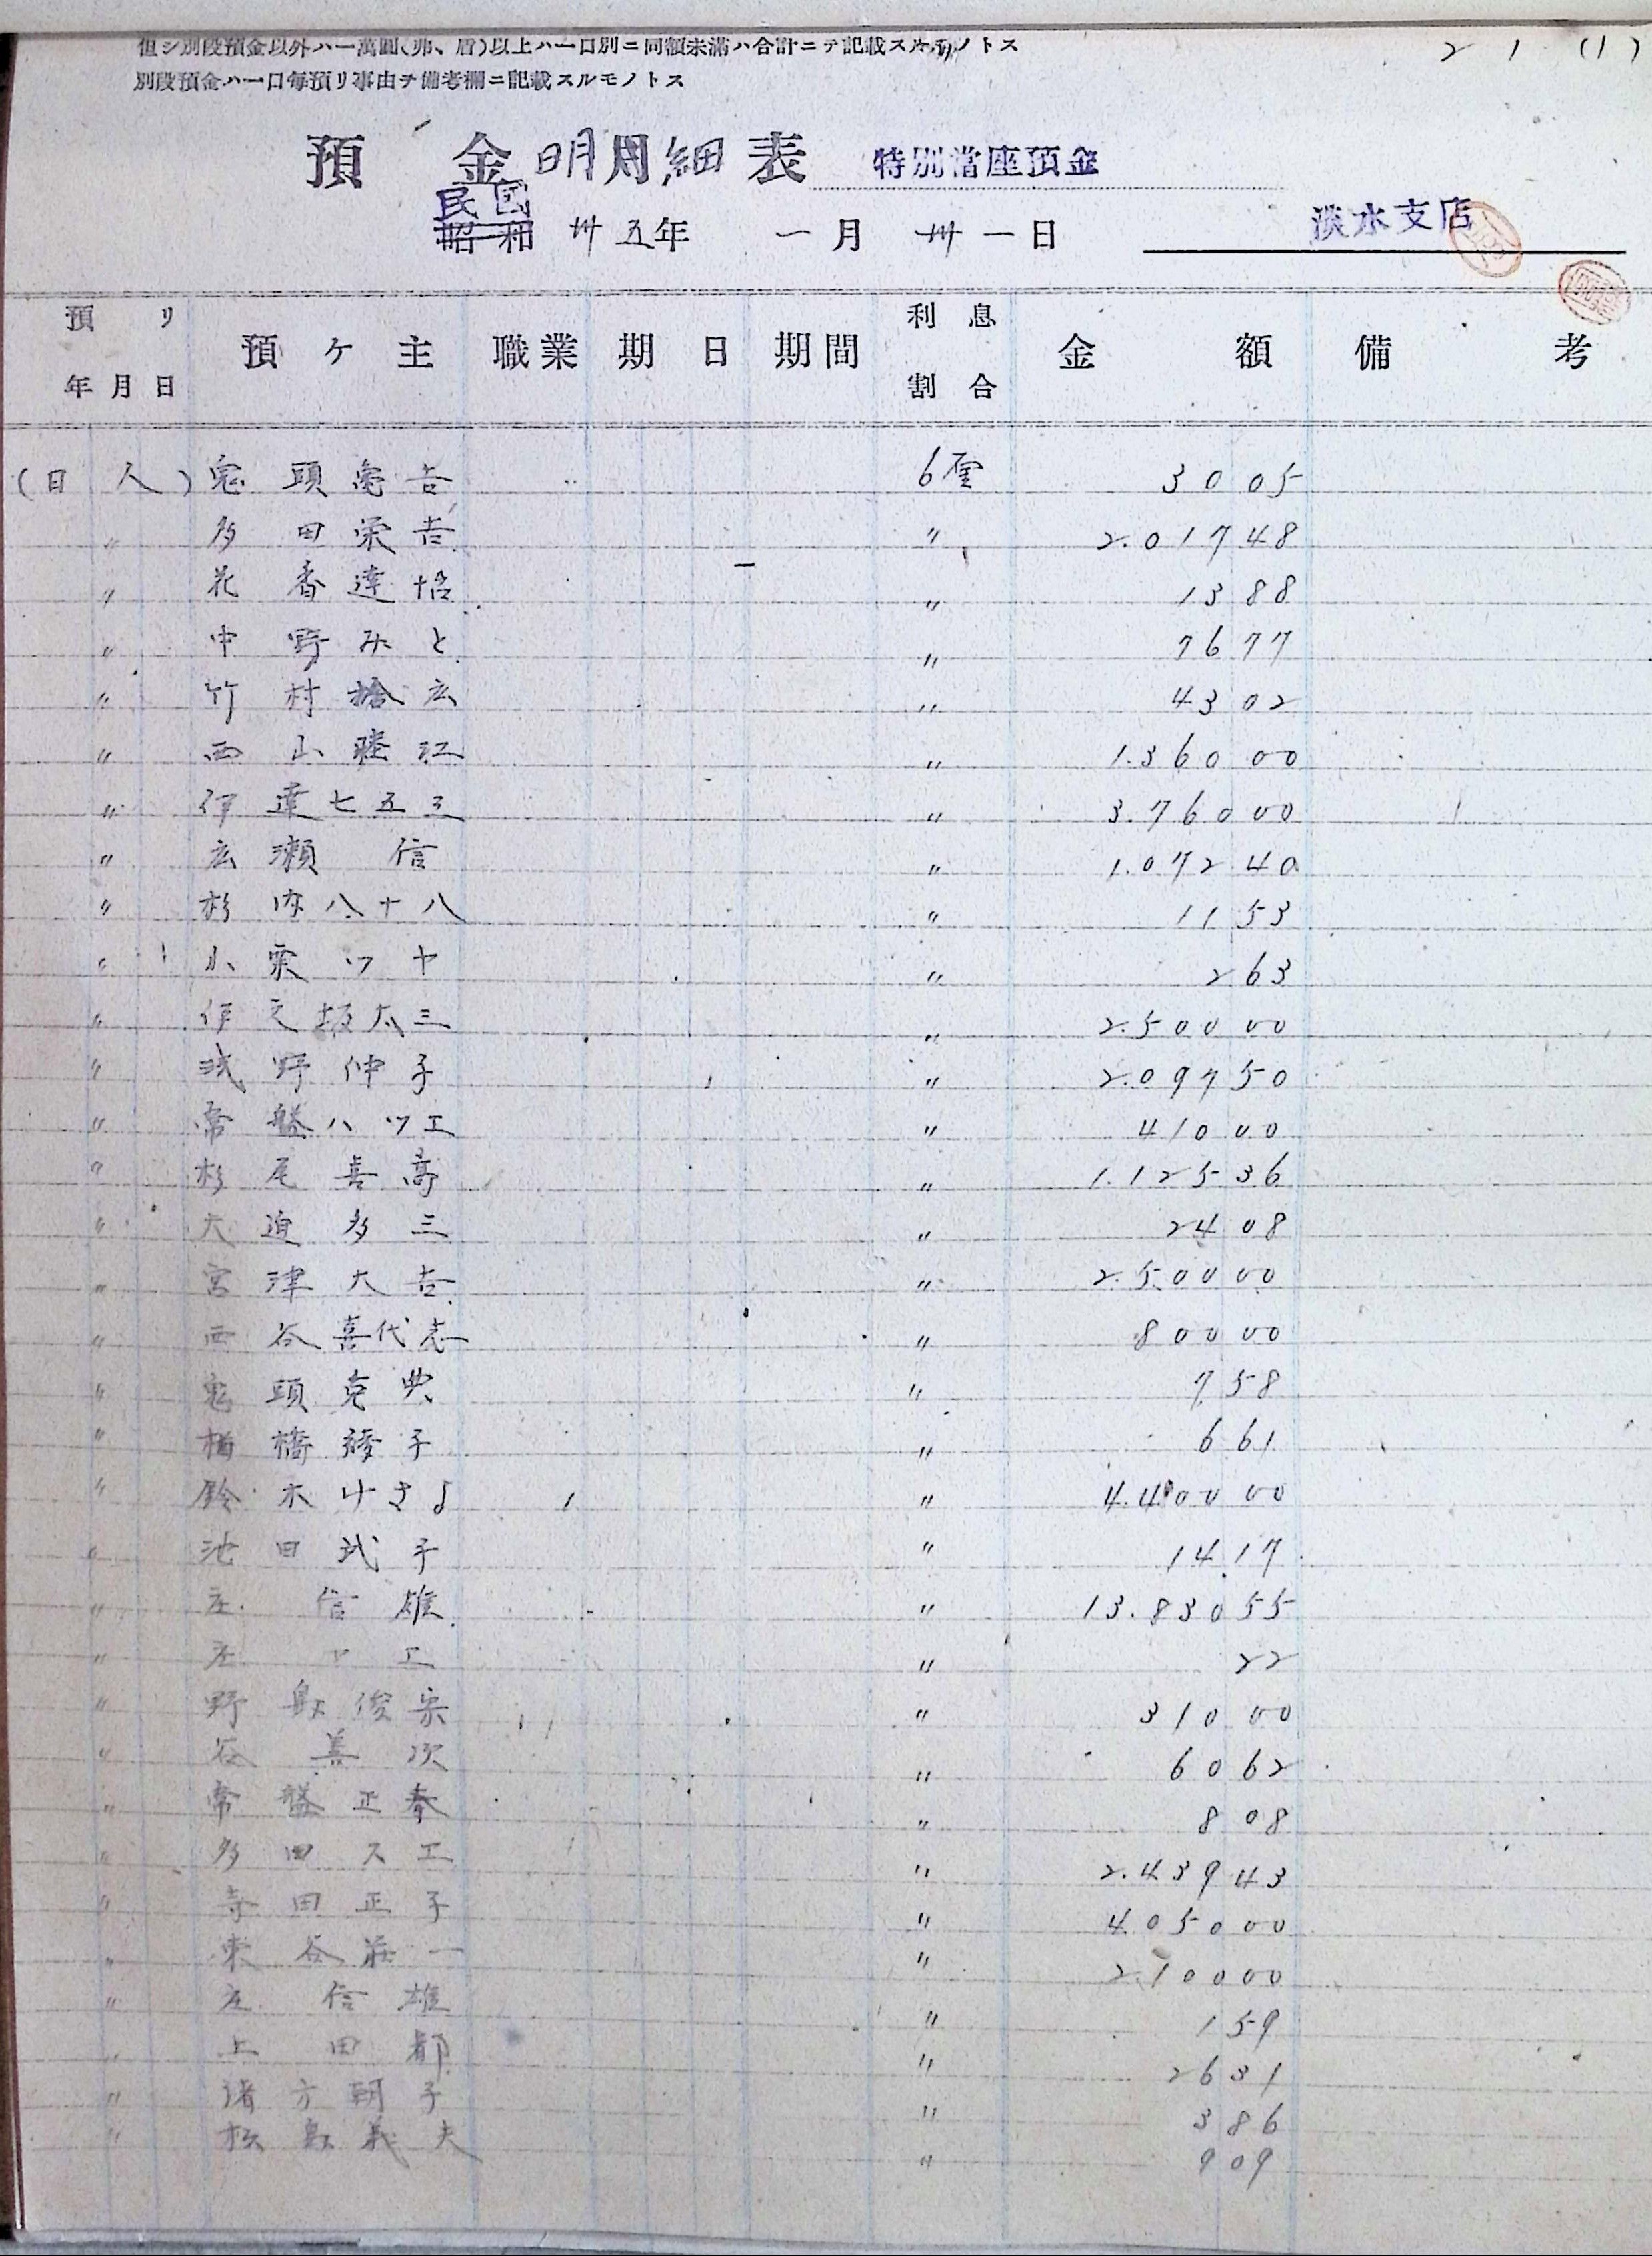 但シ別段預金以外ハ一萬圓(弗、盾)以上ハ一口別ニ同額未滿ハ合計ニテ記載スルモノトス
2 1 (1)
別段預金ハ一口每預リ事由ヲ備考欄ニ記載スルモノトス
預金明細表 特別當座預金
民國
昭和 卅五年 一月 卅一日 淡水支店
預リ年月日 預ケ主 職業 期日 期間 利息割合 金額 備考
(日人) 鬼頭亀吉 6厘 30 05
〃 多田栄吉 〃 2.017 48
〃 花香達 〃 13 88
〃 中野みと 〃 76 77
〃 竹村捨広 〃 43 02
〃 西山睦江 〃 1.360 00
〃 伊達七五三 〃 3.760 00
〃 広瀬信 〃 1.072 40
〃 杉内八十八 〃 11 53
〃 小栗ツヤ 〃 2 63
〃 伊之坂太三 〃 2.500 00
〃 浅野仲子 〃 2.097 50
〃 常盤ハツエ 〃 410 00
〃 杉尾喜高 〃 1.125 36
〃 大迫多三 〃 24 08
〃 宮津大吉 〃 2.500 00
〃 西谷喜代志 〃 800 00
〃 鬼頭克典 〃 7 58
〃 橋綾子 〃 6 61
〃 鈴木けさよ 〃 4.400 00
〃 池田武子 〃 14 17
〃 庄信雄 〃 13.830 55
〃 庄エ 〃 22
〃 野島俊宗 〃 310 00
〃 谷善次 〃 60 62
〃 常盤正春 〃 8 08
〃 多田スエ 〃 2.439 43
〃 寺田正子 〃 4.050 00
〃 東谷荘一 〃 2.100 00
〃 庄信雄 〃 1 59
〃 上田都 〃 26 31
〃 諸方朝子 〃 3 86
〃 松島義夫 〃 9 09